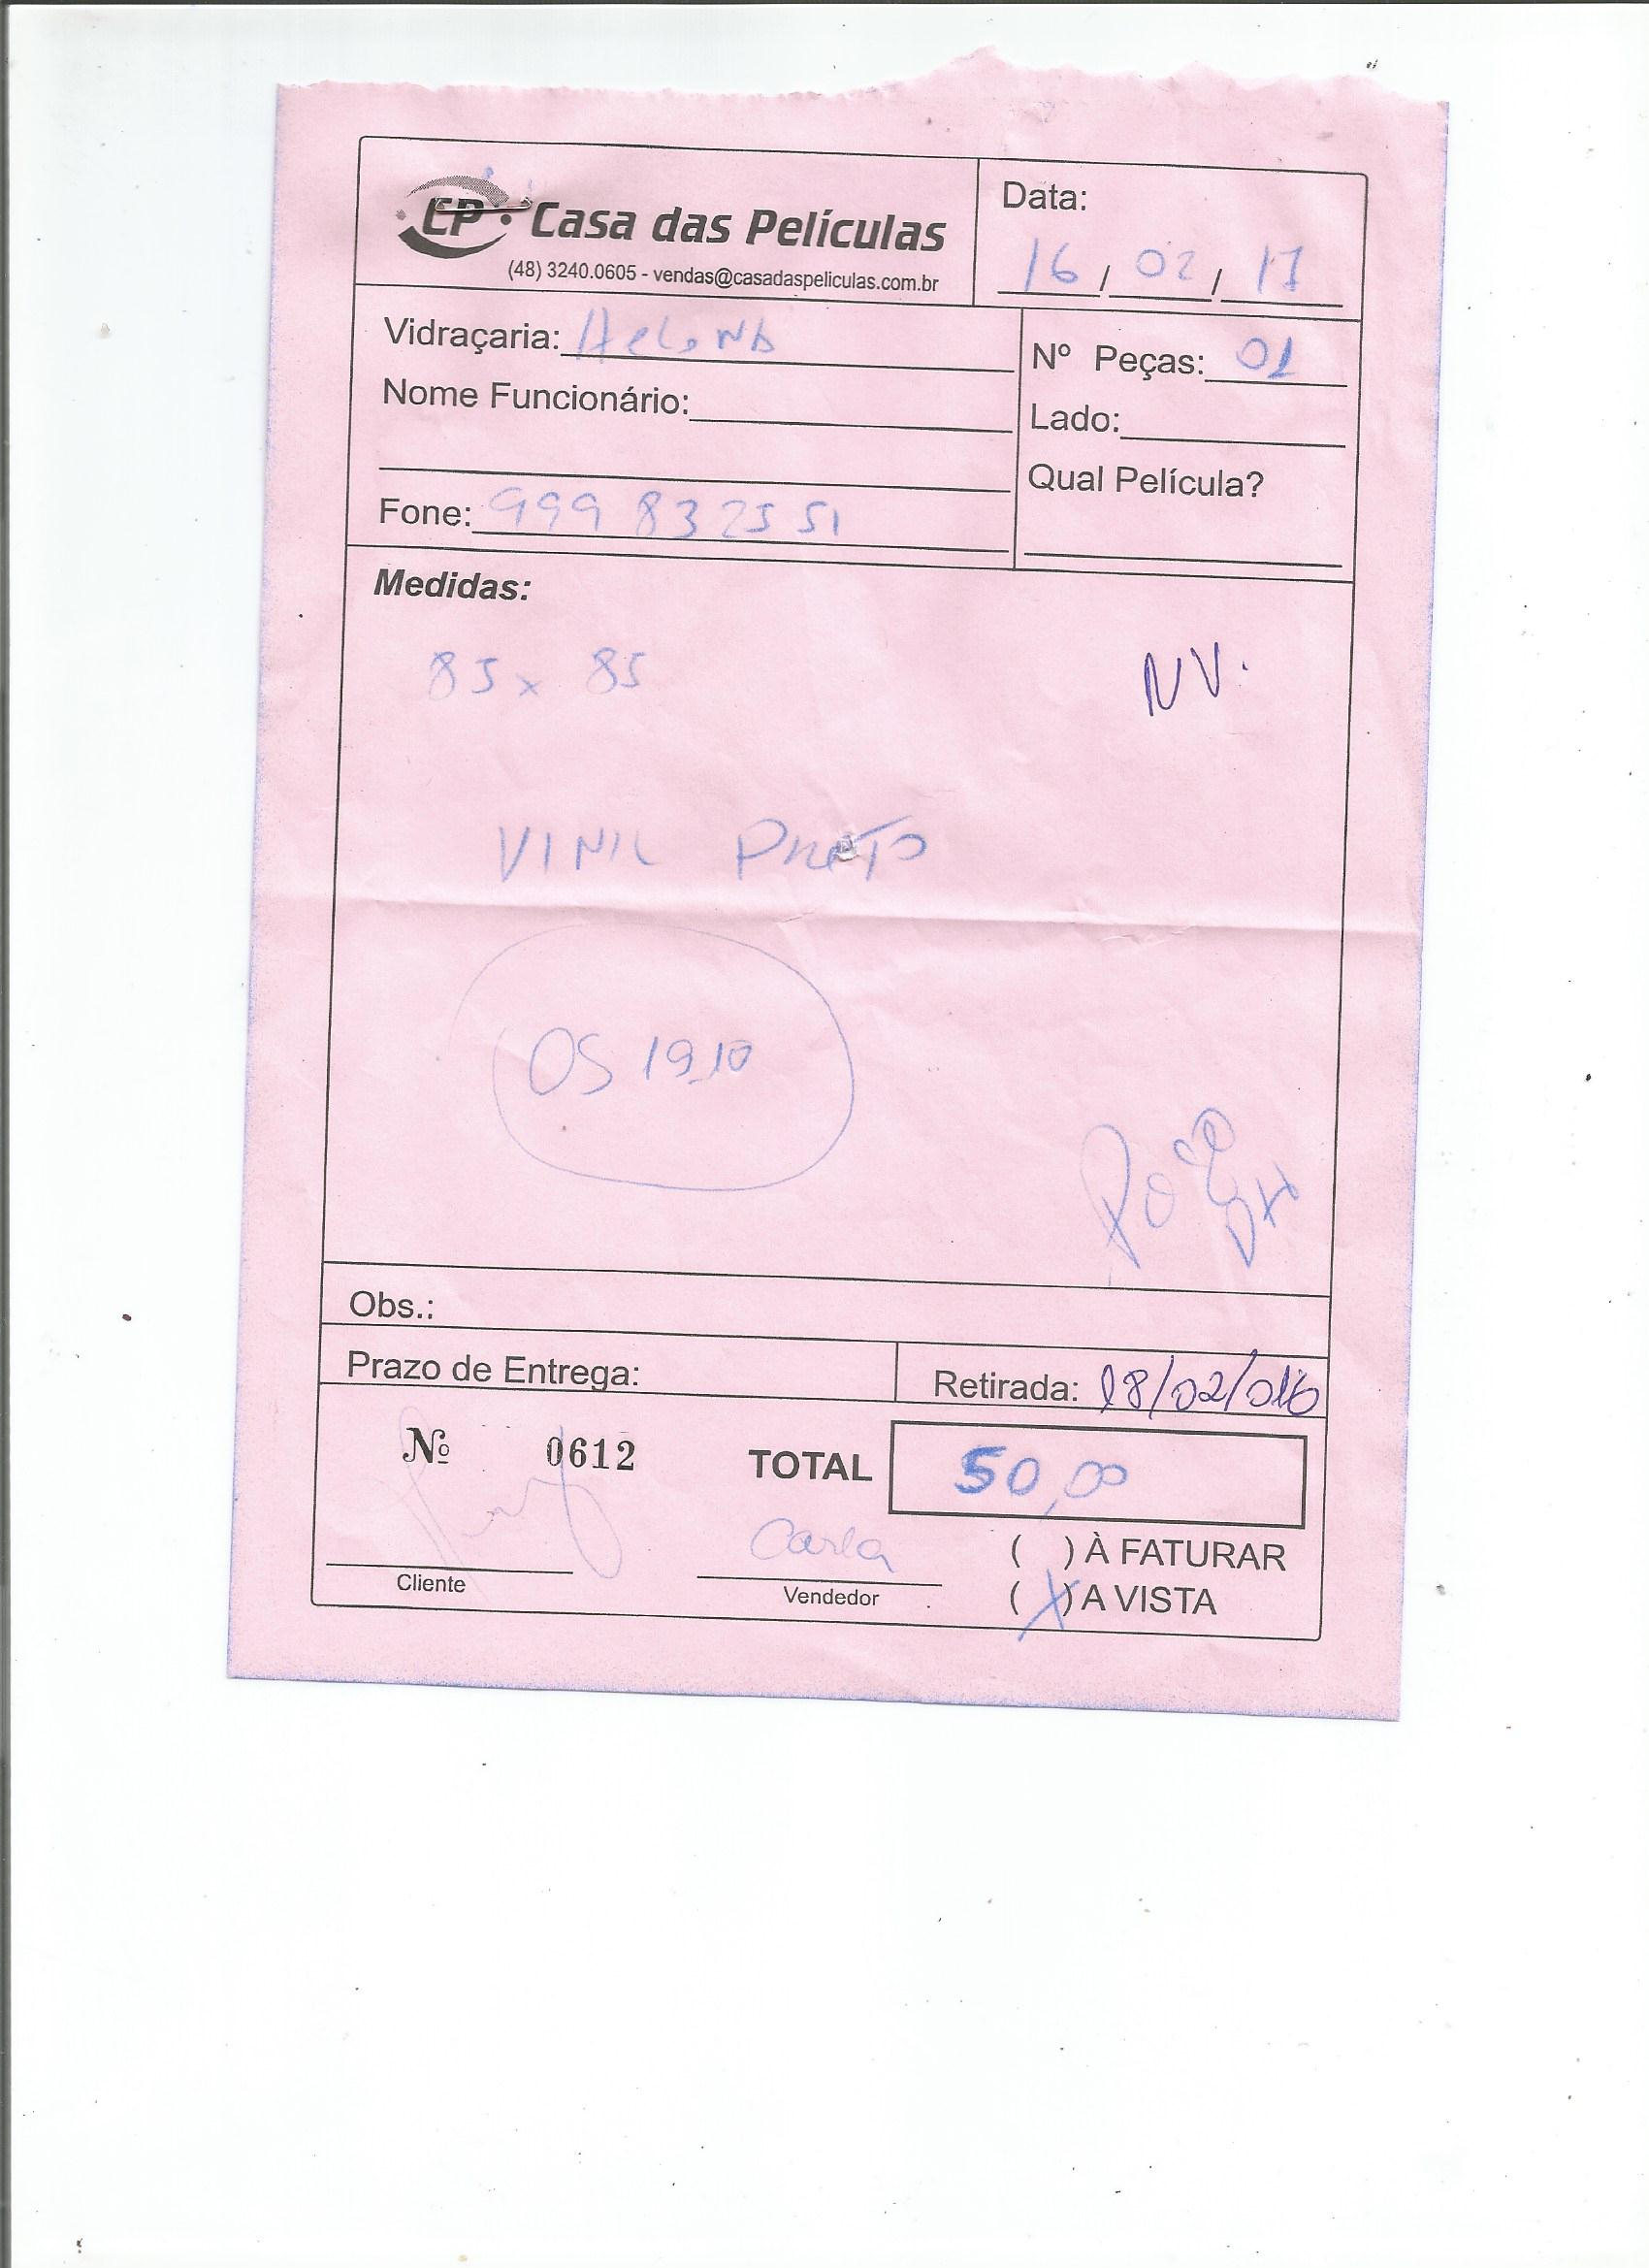 CP Casa das Películas
(48) 3240.0605 - vendas@casadaspeliculas.com.br
Data:
16 / 02 / 17
Vidraçaria:
Nº Peças: 01
Nome Funcionário:
Lado:
Qual Película?
Fone: 999 832551
Medidas:
85 x 85
NV.
VINIL PRETO
OS 1910
Obs.:
Prazo de Entrega:
Retirada: 18/02/016
Nº 0612
TOTAL 50,00
Carla
( ) À FATURAR
Cliente
Vendedor
(X) A VISTA